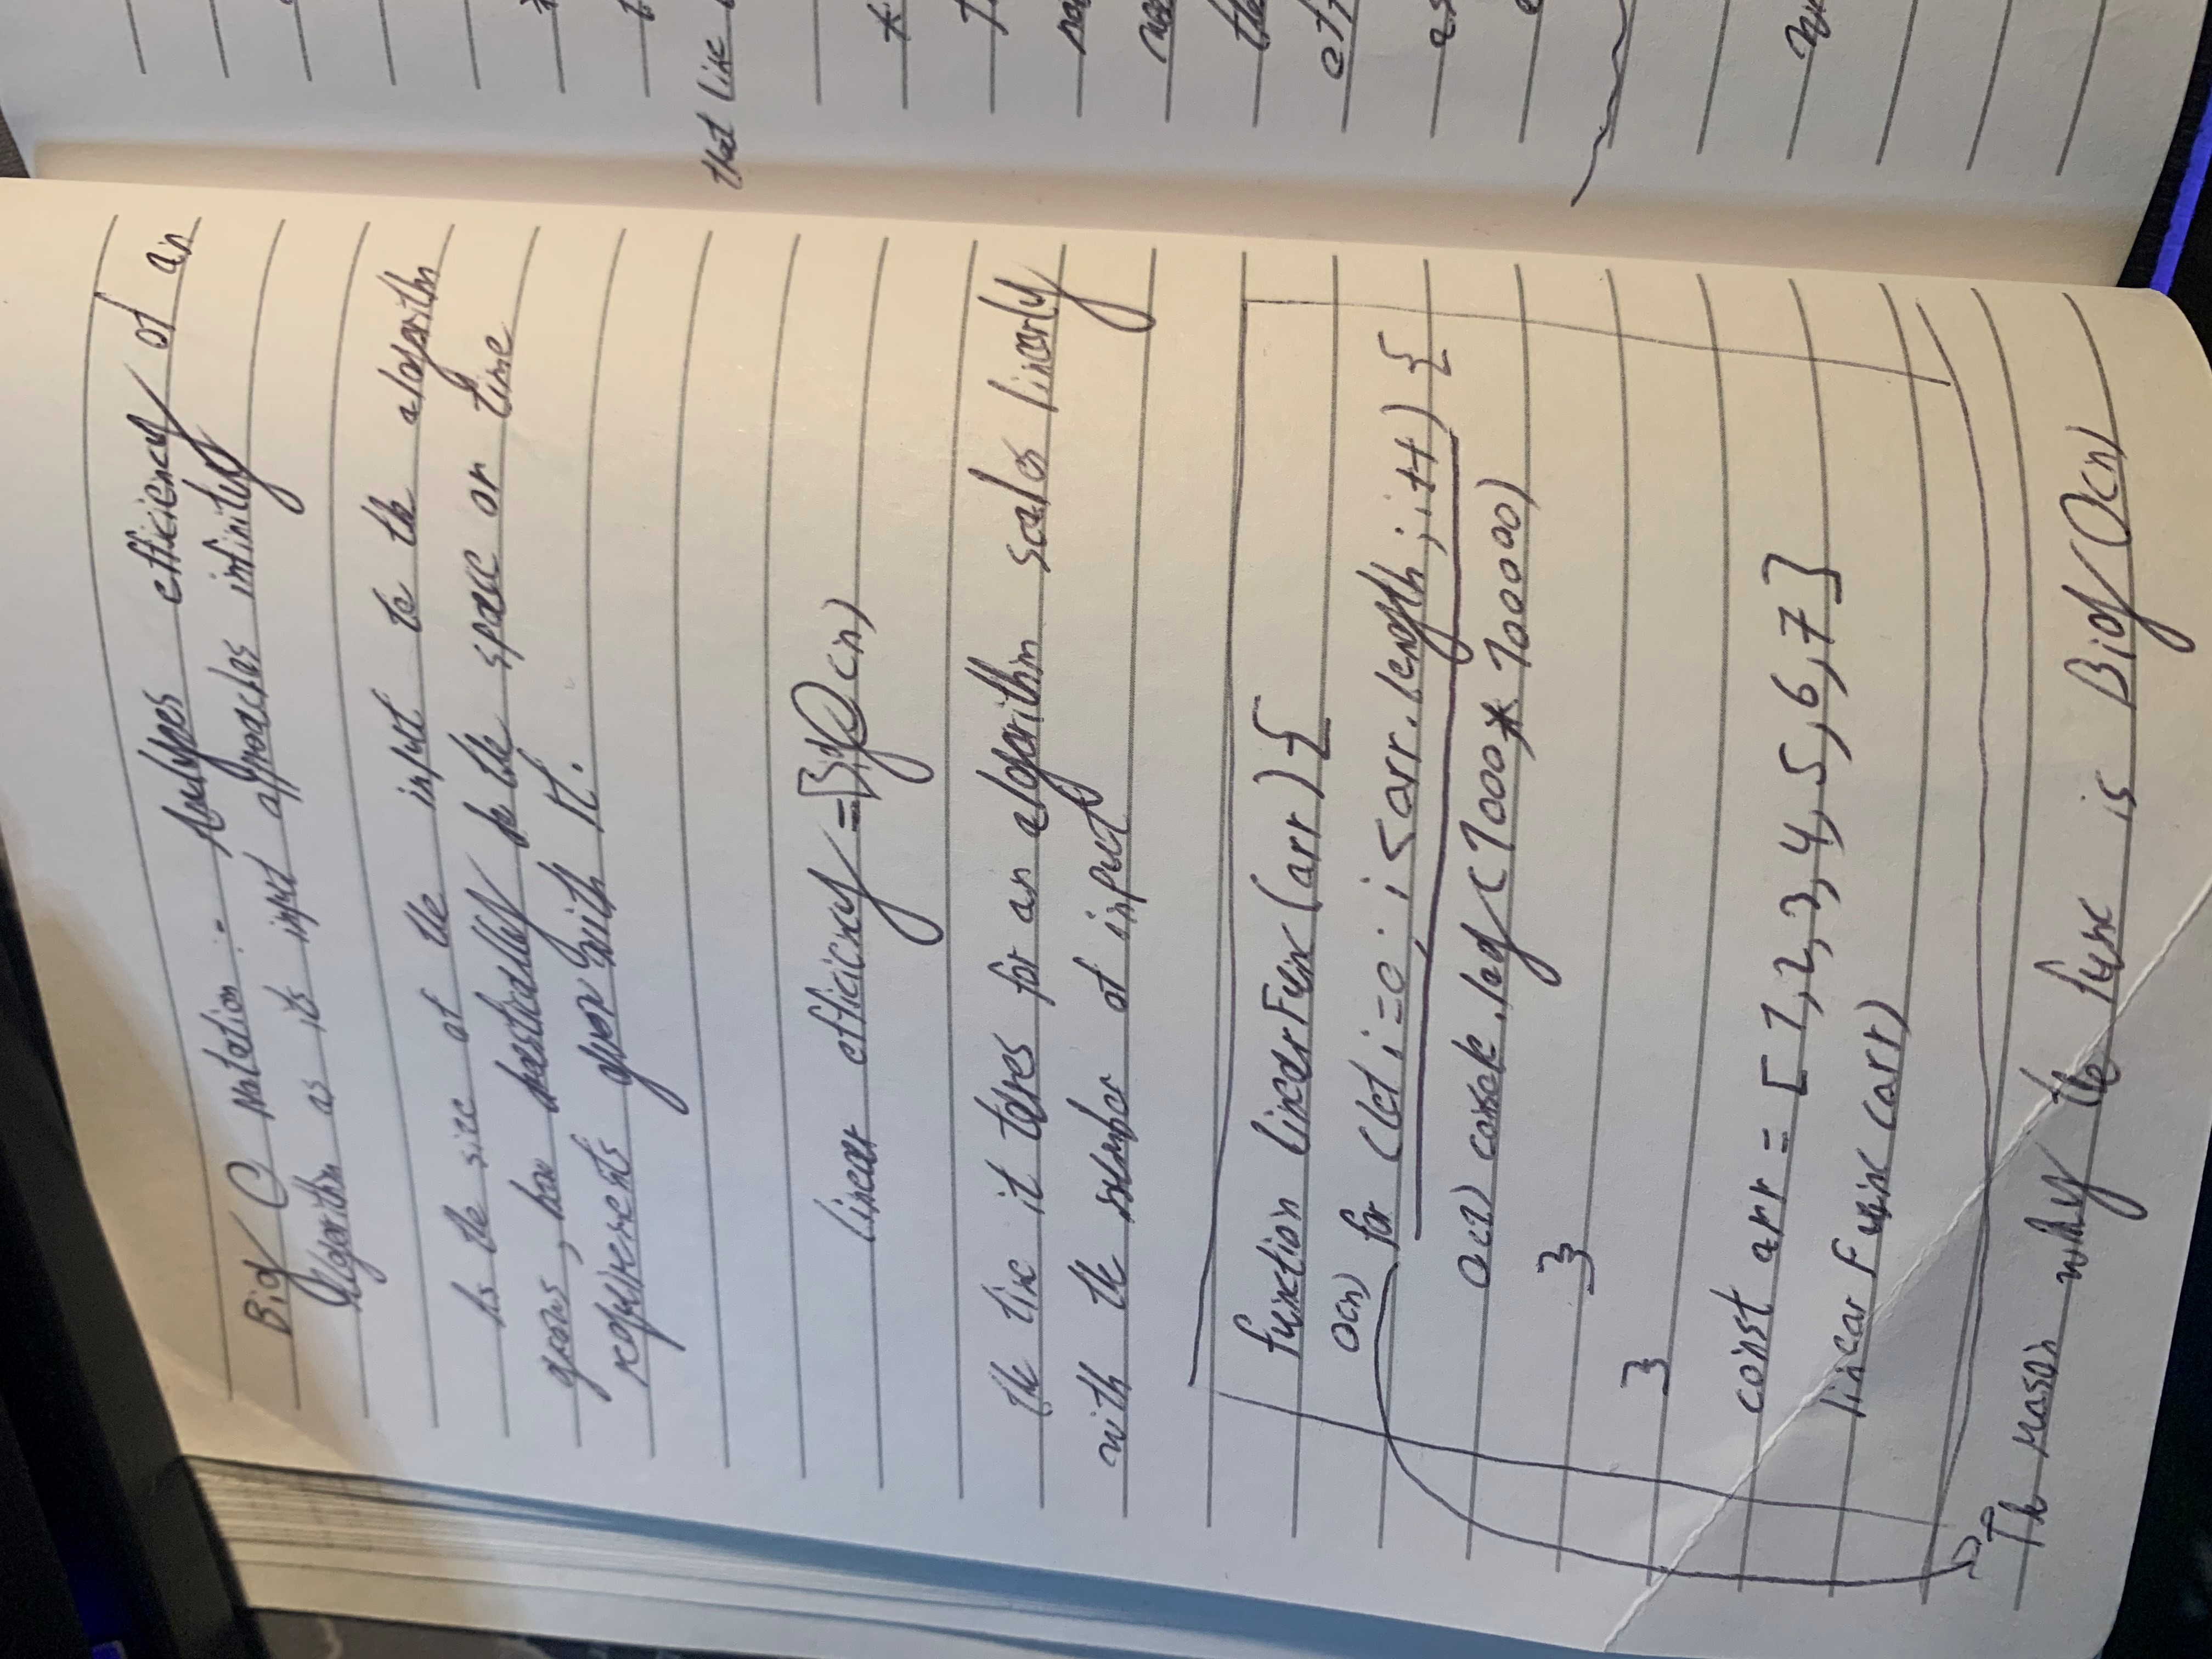 Big O notation :- Analyses efficiency of an
Algorithm as its input approaches infinitey
As the size of the input to the algorith
grows, how drasticalley do the space or time
requirements grow with it.
linear efficiency = Big O(n)
the time it takes for an algorithm scales linearly
with the number of input
function linearFunc (arr) {
O(n) for (let i = 0; i < arr.length; i++) {
O(1) console.log (1000 * 100000)
}
}
const arr = [1,2,3,4,5,6,7]
linearFunc (arr)
The reason why the func is Big O(n)
that like